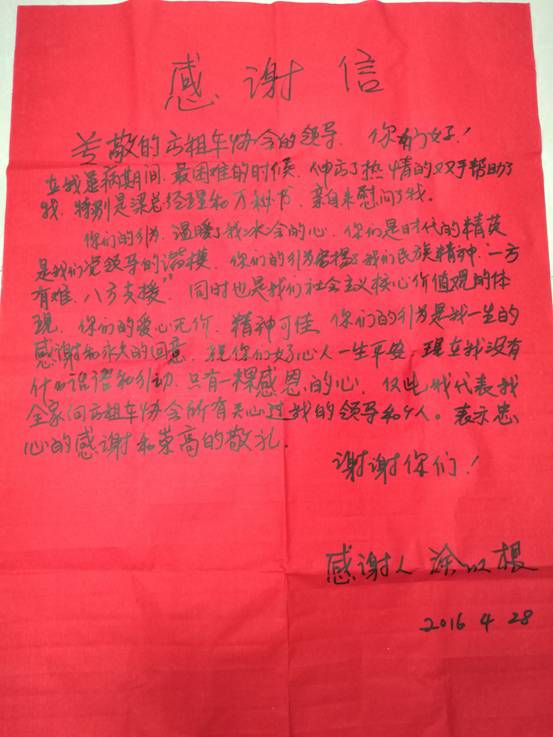 感谢信
尊敬的出租车协会的领导、你们好！
在我患病期间、最困难的时候、伸出了热情的双手帮助了
我、特别是梁总经理和万秘书、亲自来慰问了我。
你们的行为、温暖了我冰冷的心、你们是时代的精英
是我们党领导的楷模、你们的行为发扬了我们民族精神“一方
有难、八方支援”同时也是我们社会主义核心价值观的体
现、你们的爱心无价、精神可佳、你们的行为是我一生的
感谢和永久的回意、祝你们好心人一生平安、现在我没有
什么语和行动、只有一棵感恩的心、仅此我代表我
全家向出租车协会所有关心过我的领导和个人。表示忠
心的感谢和荣高的敬礼.
谢谢你们！
感谢人 涂以根
2016 4 28